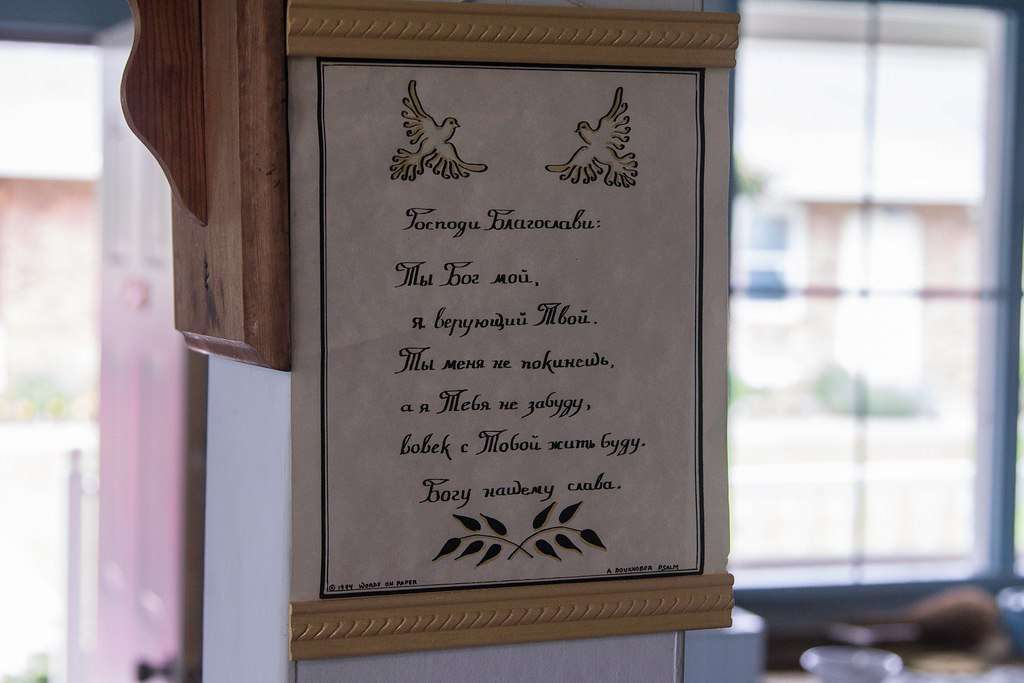 Господи Благослави:
Ты Бог мой,
я верующий Твой.
Ты меня не покинешь,
а я Тебя не забуду,
вовек с Тобой жить буду.
Богу нашему слава.
© 1984 WORDS ON PAPER
A DOUKHOBOR PSALM